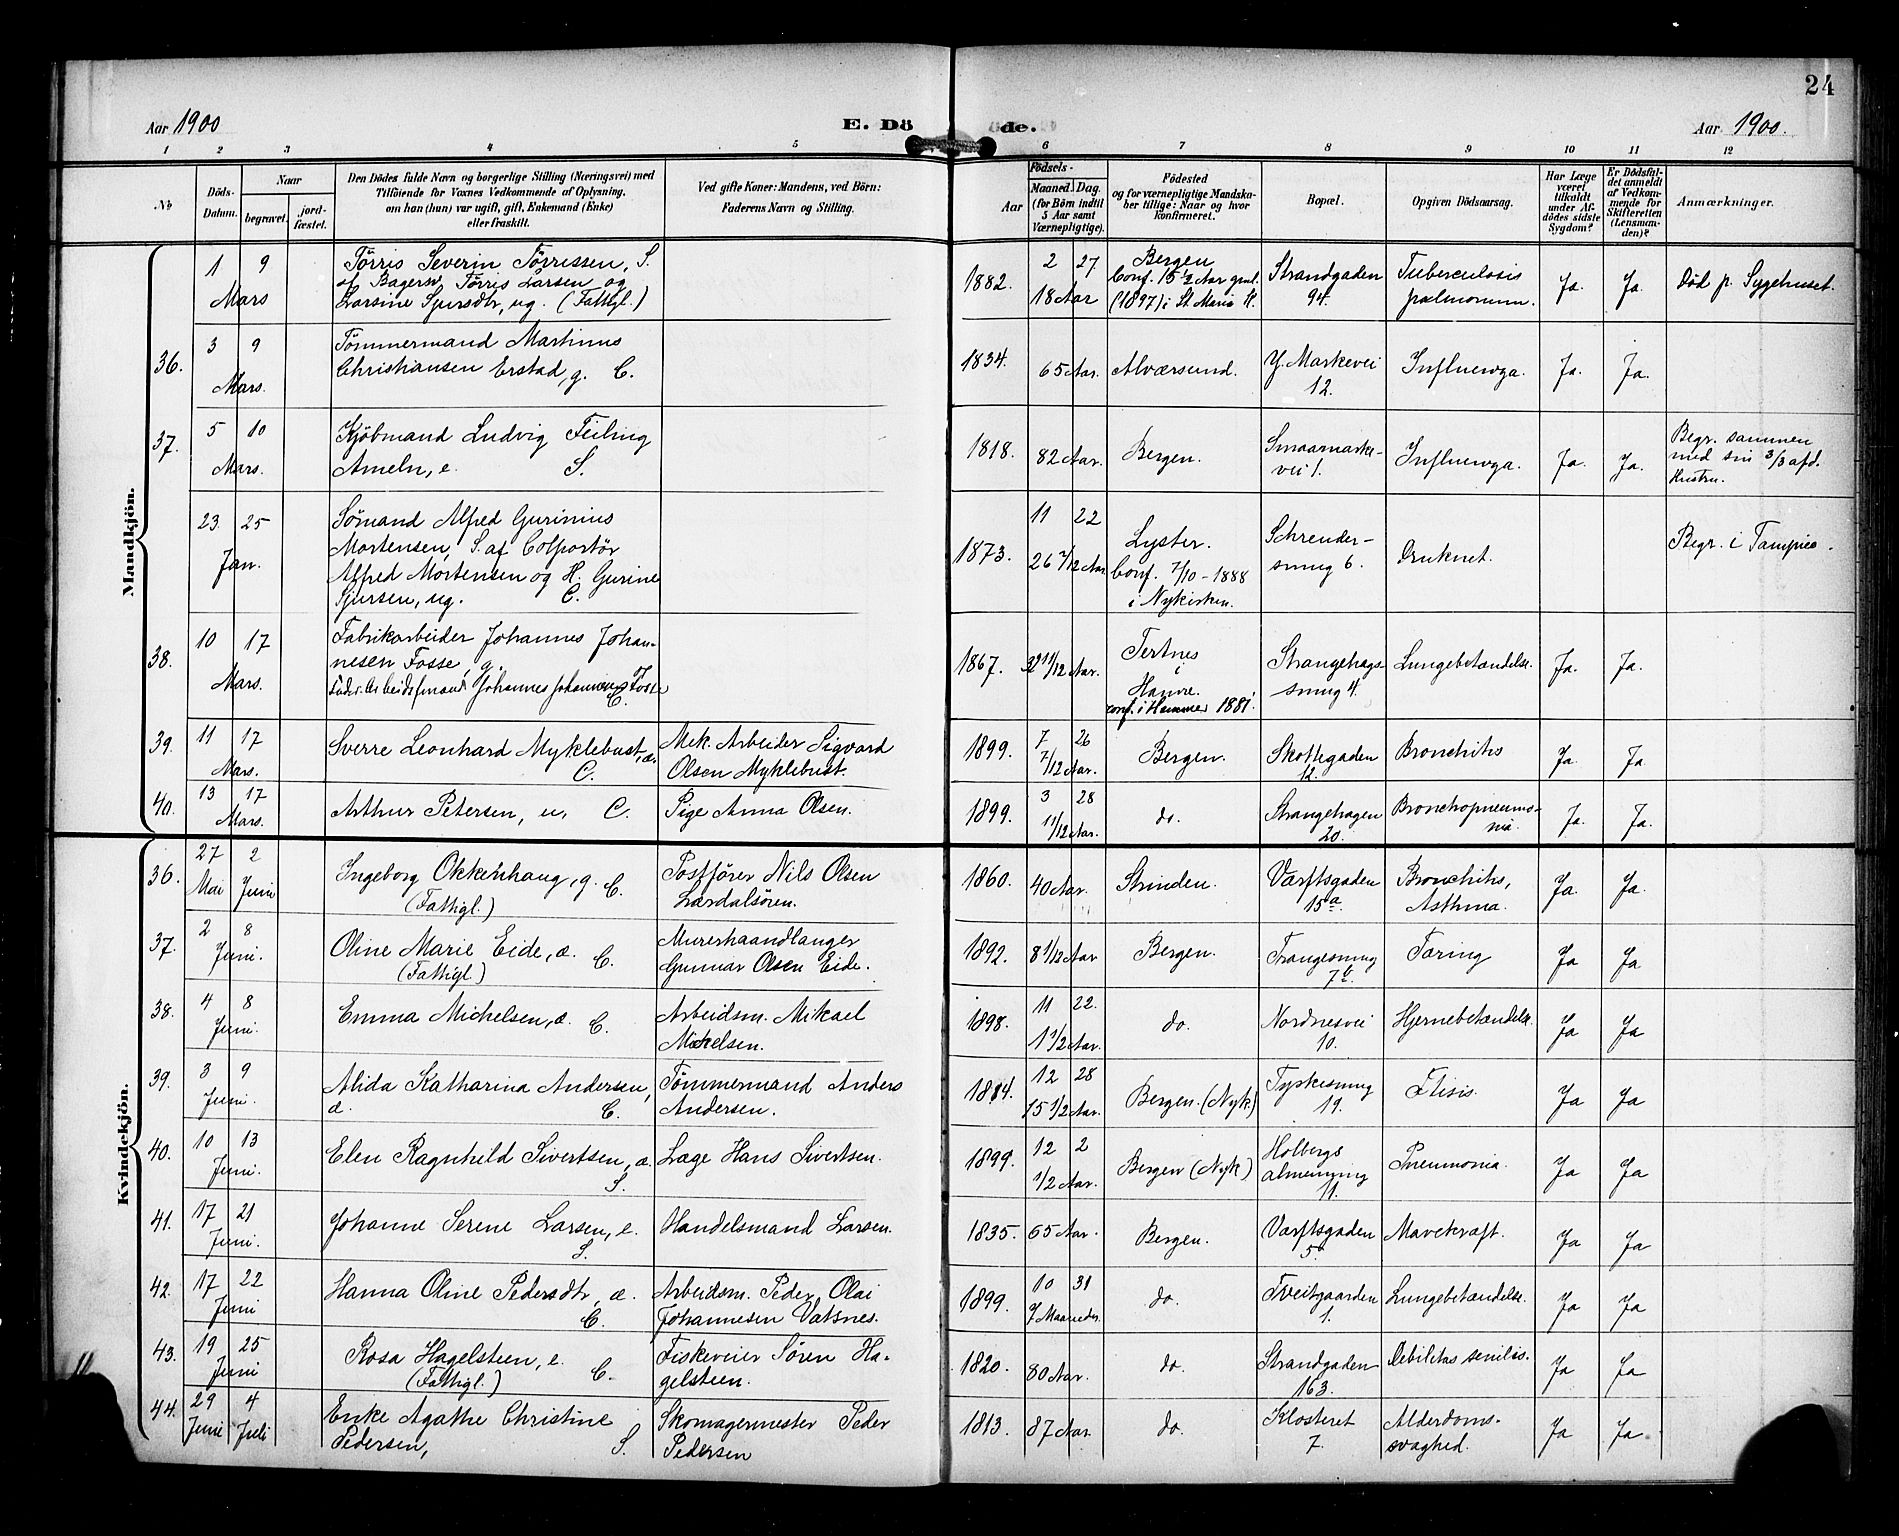 24
Aar 1900
E. Dö
de.
Aar 1900.
1 2 3 4 5 6 7 8 9 10 11 12
No
Döds-
Datum.
Naar
begravet.
jord-
fæstet.
Den Dödes fulde Navn og borgerlige Stilling (Næringsvei) med
Tilföiende for Voxnes Vedkommende af Oplysning,
om han (hun) var ugift, gift, Enkemand (Enke)
eller fraskilt.
Ved gifte Koner: Mandens, ved Börn:
Faderens Navn og Stilling.
Födsels-
Aar
Maaned. Dag.
(for Börn indtil
5 Aar samt
Værnepligtige).
Födested
og for værnepligtige Mandska-
ber tillige: Naar og hvor
Konfirmeret.
Bopæl.
Opgiven Dödsaarsag.
Har Læge
været
tilkaldt
under Af-
dödes sidste
Sygdom?
Er Dödsfal-
det anmeldt
af Vedkom-
mende for
Skifteretten
(Lensman-
den)?
Anmærkninger.
Mandkjön.
1 9
Mars
Törris Severin Törrissen, S.
af Bagersv. Törris Larsen og
Larsine Sjursdtr, ug. (Fattigl.)
1882.
2 27
18 Aar
Bergen
Conf. 15 1/2 Aar gml.
(1897) i St. Maria K.
Strandgaden
94.
Tuberculosis
pulmonum.
Ja. Ja.
Död p. Sygehuset.
36.
3 9
Mars.
Tömmermand Martinus
Christiansen Erstad, g. C.
1834.
65 Aar.
Alværsund.
Y. Markevei
12.
Influenza.
Ja. Ja.
37.
5 10
Mars.
Kjöbmand Ludvig Feiling
Ameln, e. S.
1818.
82 Aar.
Bergen.
Smaamarke-
vei 1.
Influenza.
Ja. Ja.
Begr. sammen
med sin 3/3 afd.
Hustru.
23. 25
Jan.
Sömand Alfred Gurinius
Mortensen, S. af Colportör
Alfred Mortensen og H. Gurine
Sjursen, ug. C.
1873.
11 22
26 2/12 Aar
Lyster.
Conf. 7/10 - 1888
i Nykirken.
Schreuder-
smug 6.
Druknet.
Begr. i Tampico.
38.
10 17
Mars.
Fabrikarbeider Johannes Johan-
nesen Fosse, g.
Fader: Arbeidsmand Johannes Johannesen Fosse
C.
1867.
32 11/12 Aar.
Tertnes
i
Hamre.
conf. i Hammer 1881.
Strangehags-
smug 4.
Lungebetændelse.
Ja. Ja.
39.
11 17
Mars.
Sverre Leonhard Myklebust, æ.
C.
Mek. Arbeider Sigvard
Olsen Myklebust.
1899.
7 26
7/12 Aar.
Bergen.
Skottegaden
12.
Bronchitis
Ja. Ja.
40.
13 17
Mars.
Arthur Petersen, u, C.
Pige Anna Olsen.
1899.
3 28
11/12 Aar.
do.
Strangehagen
20.
Bronchopneumo-
nia.
Ja. Ja.
Kvindekjön.
36.
27 2
Mai Juni
Ingeborg Okkenhaug, g. C.
(Fattigl.)
Postförer Nils Olsen
Lærdalsören.
1860.
40 Aar.
Strinden.
Værftsgaden
15a.
Bronchitis,
Asthma.
Ja Ja.
37.
2 8
Juni.
Oline Marie Eide, æ. C.
(Fattigl.)
Murerhaandlanger
Gunnar Olsen Eide.
1892.
8 1/12 Aar
Bergen.
Trangesmug
7b.
Tæring
Ja Ja
38.
4 8
Juni.
Emma Michelsen, æ. C.
Arbeidsm. Mikael
Mickelsen.
1898.
11 22.
1 1/2 Aar.
do.
Nordnesvei
10.
Hjernebetændelse.
Ja Ja
39.
3 9
Juni.
Alida Katharina Andersen,
æ. C.
Tömmermand Anders
Andersen.
1884.
12 28
15 1/2 Aar.
Bergen. (Nyk)
Tyskesmug
19.
Ftisis.
Ja Ja
40.
10 13
Juni.
Elen Ragnhild Sivertsen, æ.
S.
Læge Hans Sivertsen.
1899.
12 2
1/2 Aar.
Bergen (Nyk)
Holbergs
almenning
11.
Pneumonia.
Ja Ja
41.
17 21
Juni.
Johanne Serene Larsen, e.
S.
Handelsmand Larsen.
1835.
65 Aar.
Bergen.
Værftsgaden
5.
Mavekræft.
Ja Ja
42.
17 22
Juni
Hanna Oline Pedersdtr, æ.
C.
Arbeidsm. Peder Olai
Johannesen Vatsnes.
1899.
10 31
7 Maaneder.
do.
Tveitgaarden
1.
Lungebetændelse.
Ja Ja
43.
19 25
Juni
Rosa Hagelsteen, e.
(Fattigl.) C.
Fiskeveier Sören Ha-
gelsteen.
1820.
80 Aar.
do.
Strandgaden
163.
Debilitas senilis.
Ja Ja
44.
29 4
Juni Juli
Enke Agathe Christine
Pedersen, S.
Skomagermester Peder
Pedersen
1813.
87 Aar.
do.
Klosteret
7.
Alderdoms-
svaghed.
Ja Ja